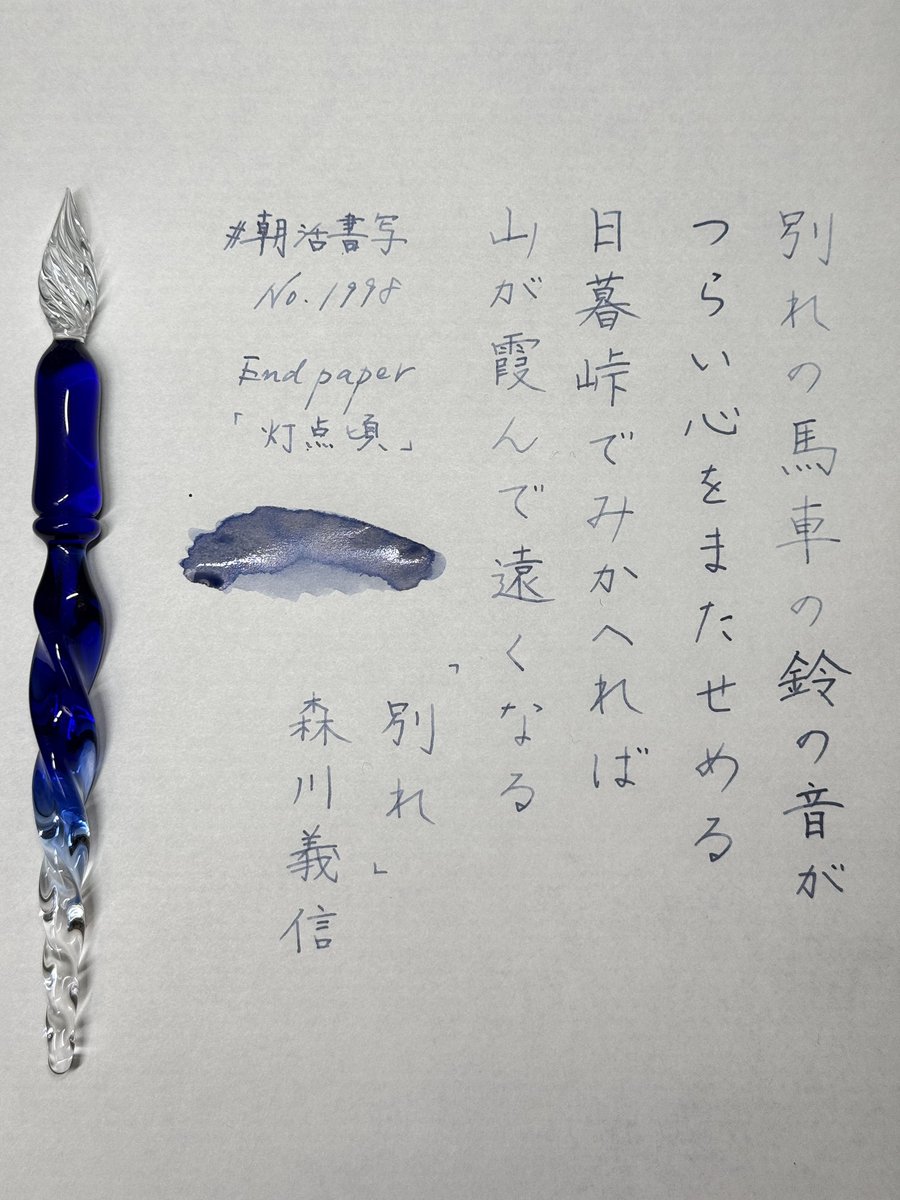 別れの馬車の鈴の音が
つらい心をまたせめる
日暮峠でみかへれば
山が霞んで遠くなる
「別れ」
森川義信
#朝活書写
No.1998
End paper
「灯点頃」